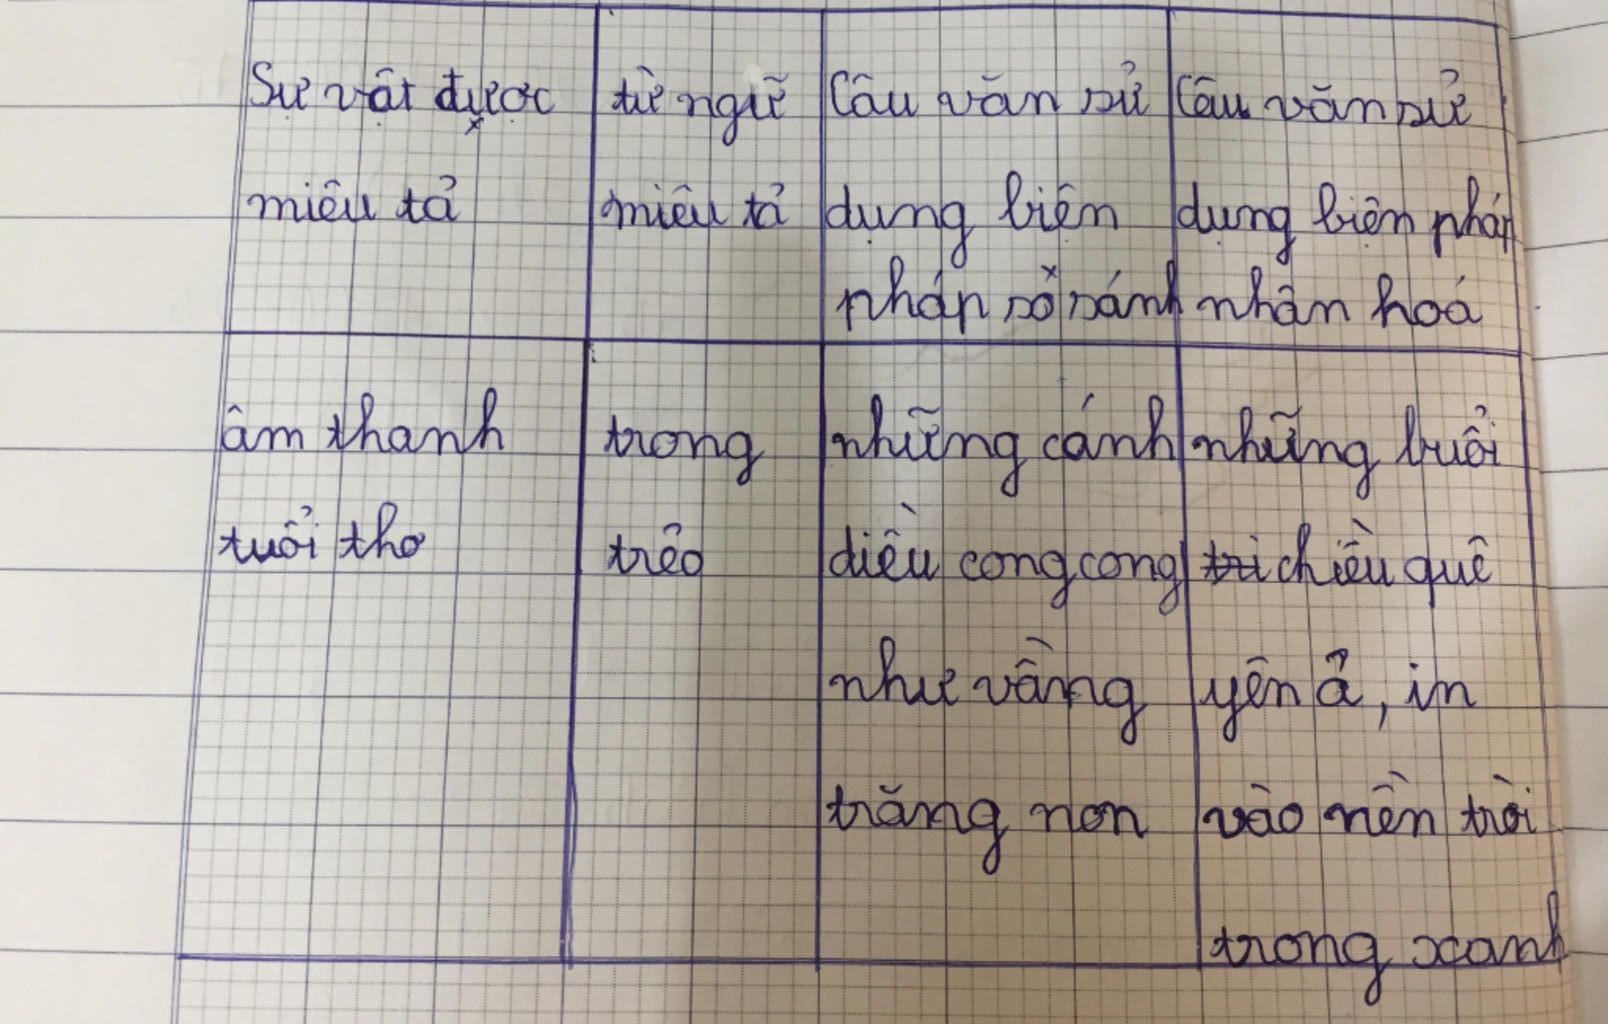 Sự vật được
miêu tả
từ ngữ
miêu tả
Câu văn sử
dụng biện
pháp so sánh
Câu văn sử
dụng biện pháp
nhân hoá
âm thanh
tuổi thơ
trong
trẻo
những cánh
diều cong cong
như vầng
trăng non
những buổi
chiều quê
yên ả, in
vào nền trời
trong xanh